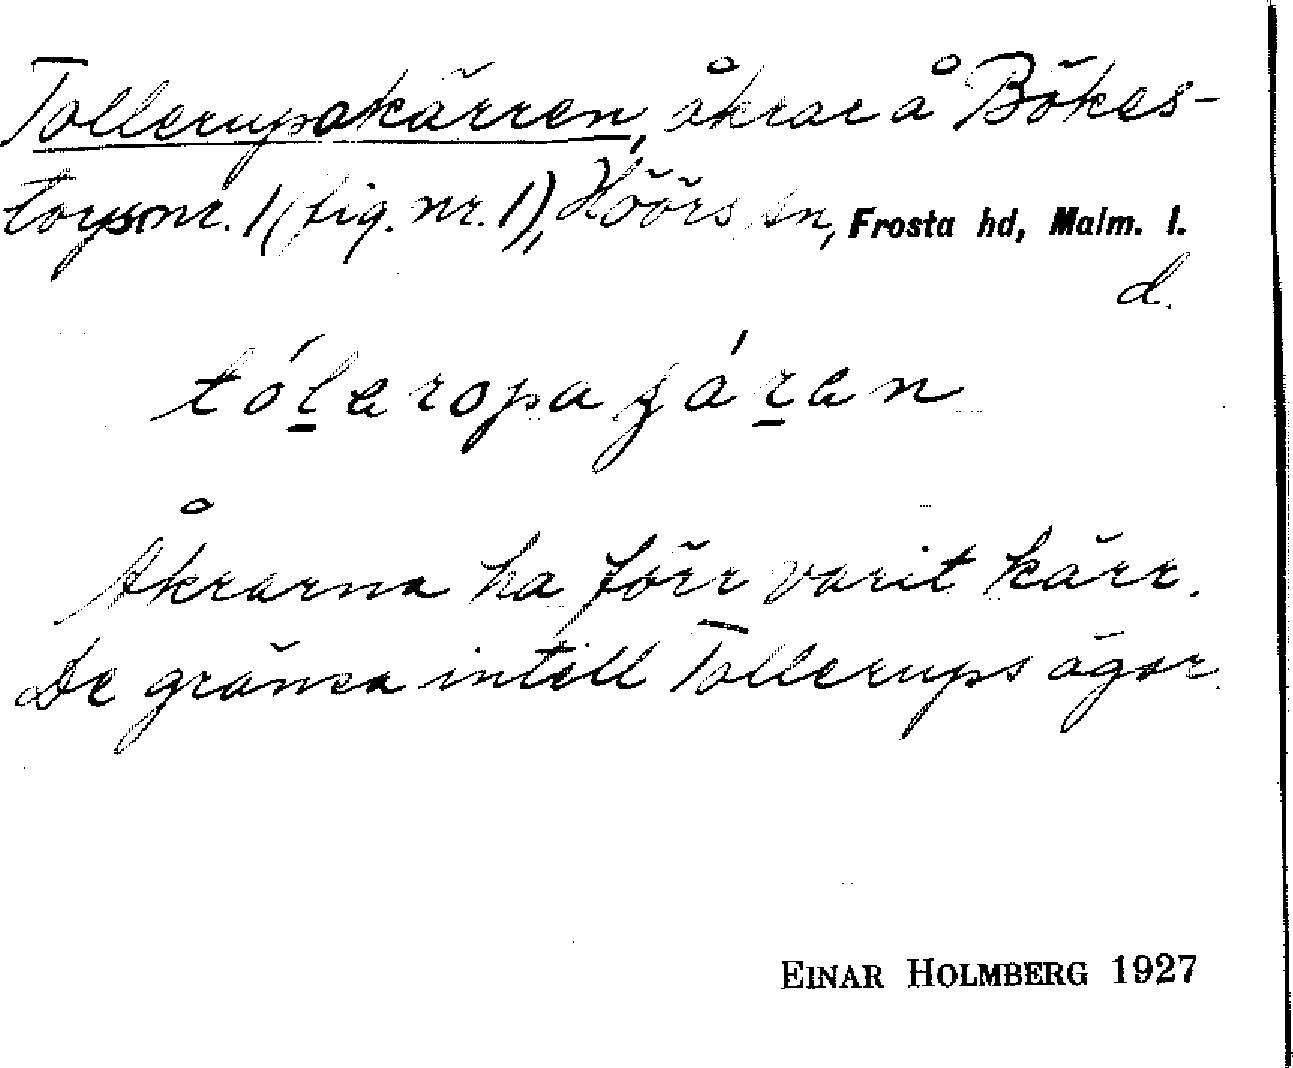 Tollerupakärren, åkrar å Bökes-
torps nr. 1 (fig. nr. 1), Höörs sn, Frosta hd, Malm. l.
d.
Åkrarna ha förr varit kärr.
De gränsa intill Tollerups ägor.
EINAR HOLMBERG 1927